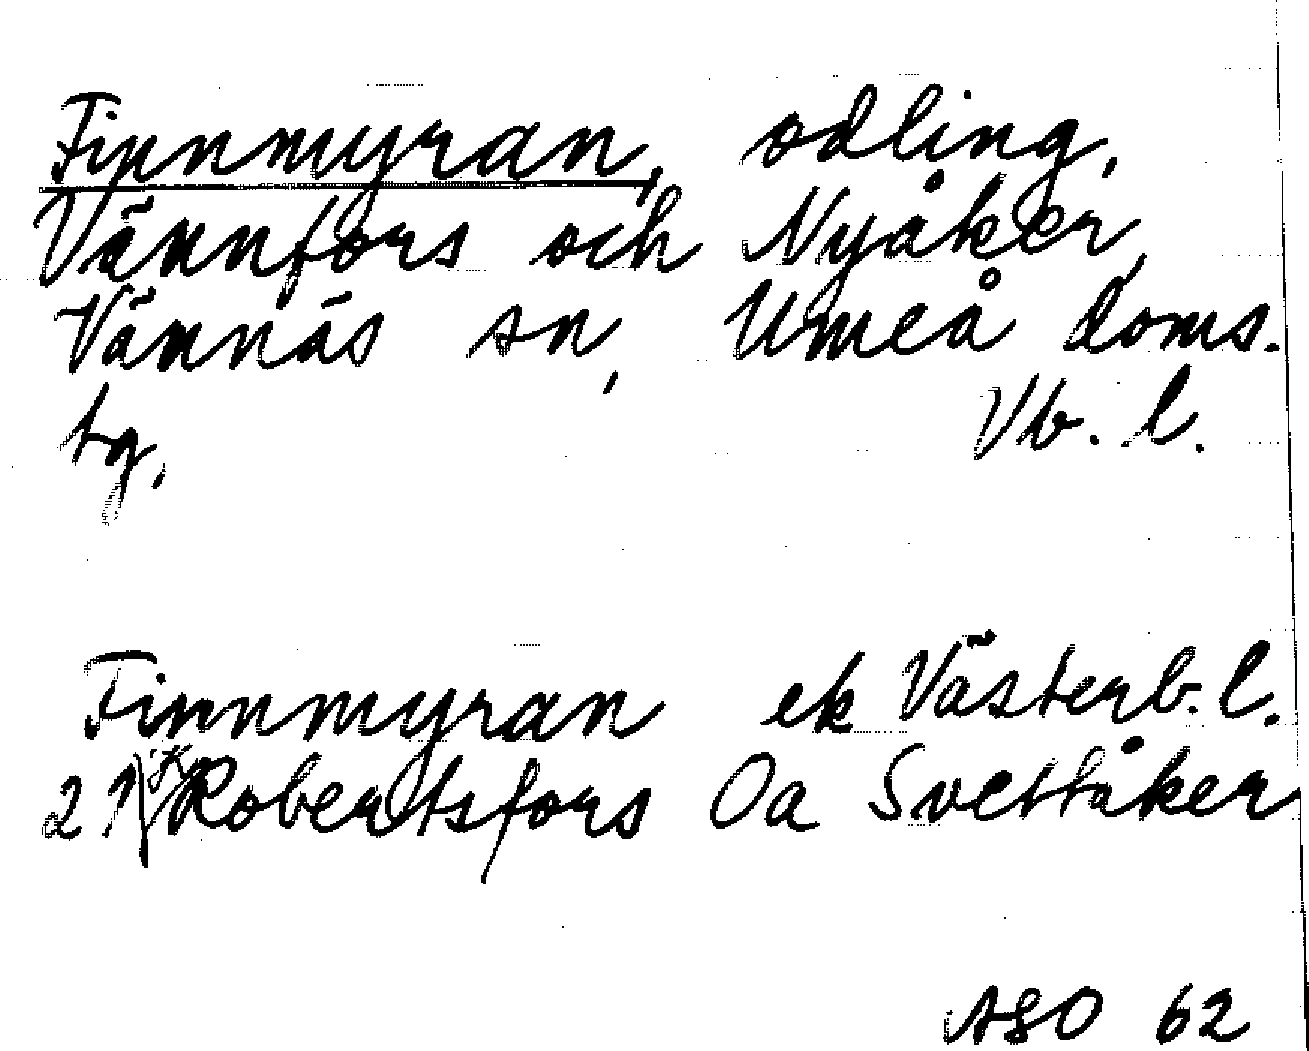 Finnmyran, odling,
Vännfors och Nyåker,
Vännäs sn, Umeå doms.
tg, Vb. l.
Finnmyran ek Västerb. l.
21 K Robertsfors Oa Svettåker
ASO 62